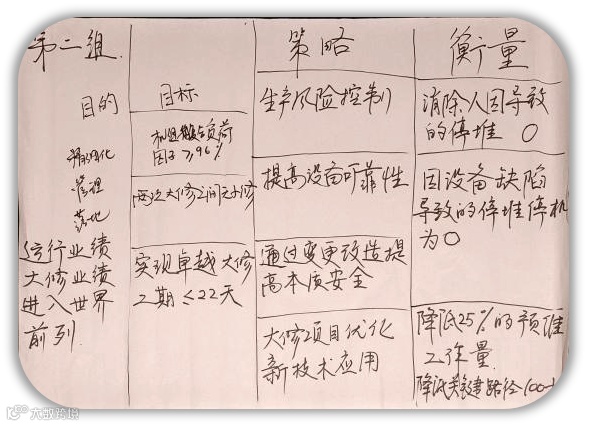 第二组
策略
衡量
目的
目标
生产风险控制
消除人因导致
的停堆 0
机组
负荷
因子≥96%
精细化
管理
落地
两次大修之间无小修
提高设备可靠性
因设备缺陷
导致的停堆停机
为0
运行业绩
大修业绩
进入世界
前列
实现卓越大修
工期≤22天
通过变更改造提
高本质安全
大修项目优化
新技术应用
降低25%的预维
工作量
降低关键路径100
大数跨境